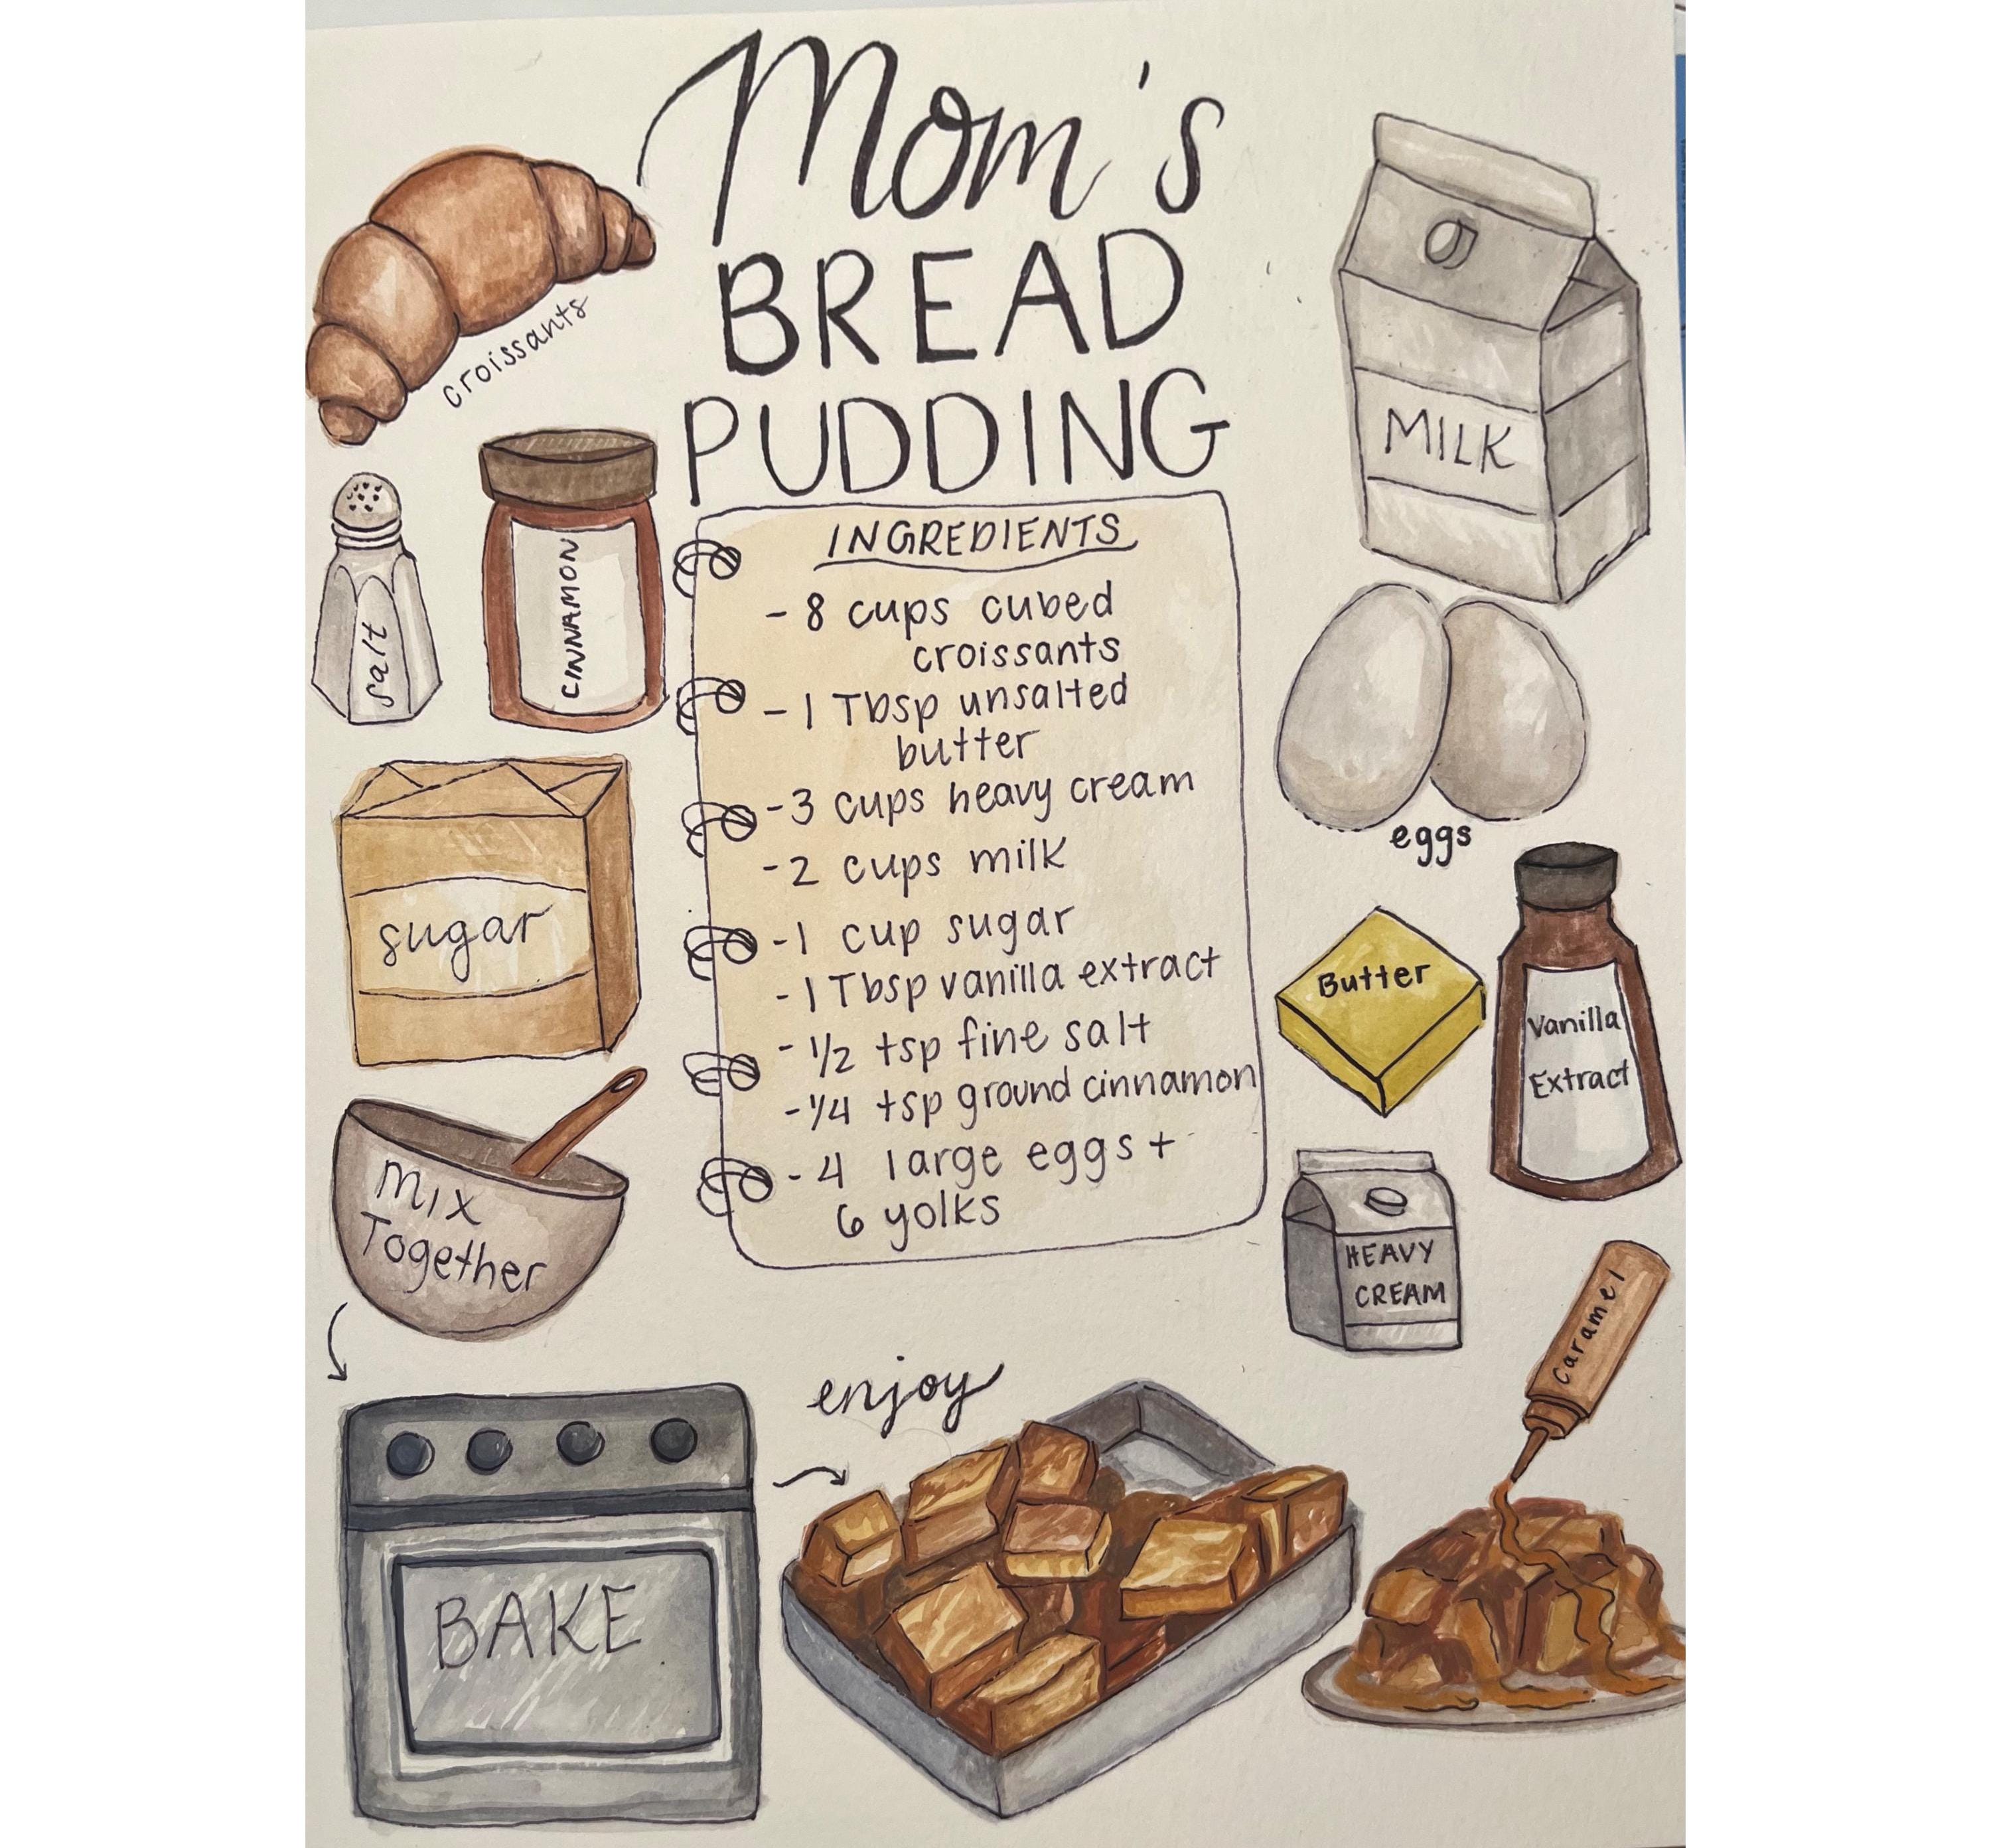 Mom's
BREAD
PUDDING
croissants
MILK
salt
CINNAMON
INGREDIENTS
- 8 cups cubed
croissants
- 1 Tbsp unsalted
butter
- 3 cups heavy cream
- 2 cups milk
- 1 cup sugar
- 1 Tbsp vanilla extract
- 1/2 tsp fine salt
- 1/4 tsp ground cinnamon
- 4 large eggs +
6 yolks
eggs
sugar
Butter
Vanilla
Extract
Mix
Together
HEAVY
CREAM
caramel
enjoy
BAKE